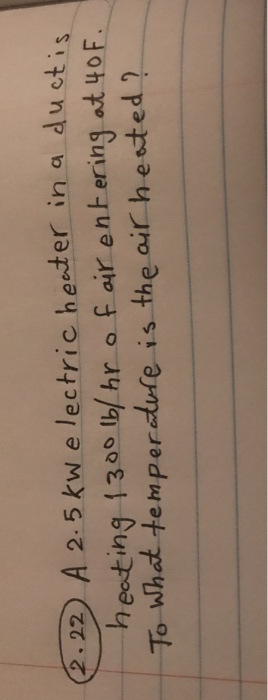 2.22 A 2.5 kW electric heater in a duct is
heating 1300 lb/hr of air entering at 40 F.
To what temperature is the air heated?